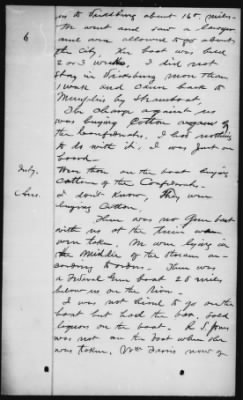 us to Vicksburg about 16 miles.
We went and saw a lawyer
and were allowed to go about
6
the City. The boat was held
2 or 3 weeks. I did not
stay in Vicksburg more than
1 week and came back to
Memphis by steamboat.
The charge against us
was buying Cotton
the Confederates. I had nothing
to do with it. I was just on
board.
Inty.
Were those on the boat buying
cotton of the Confederates.
Ans.
I don't know, they were
buying Cotton.
There was no Gun boat
with us at the time we
were taken. We were lying in
the middle of the stream
according to orders. There was
a Federal Gun boat 25 miles
below us on the River.
I was not hired to go on the
boat but had the bar, sold
liquors on the boat. R. S. Jones
was not on the boat when she
was taken. Wm Farris now of